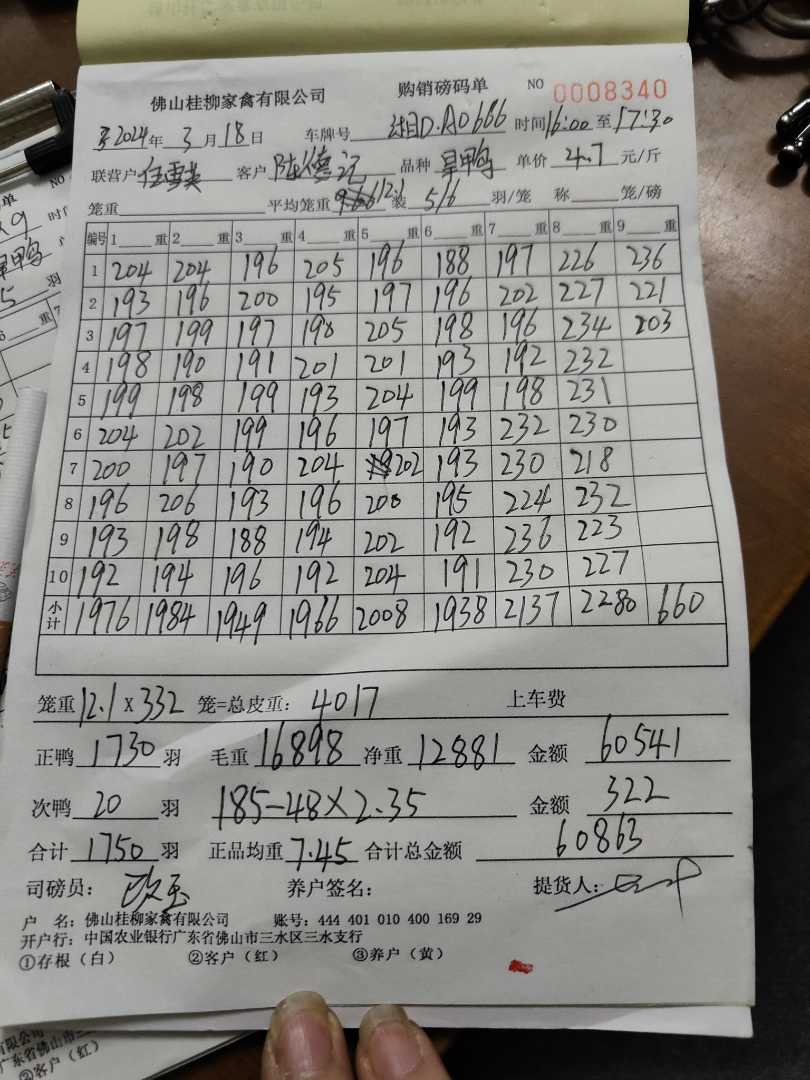 佛山桂柳家禽有限公司 购销磅码单 NO 0008340
2024年 3 月 18 日 车牌号 湘D.A0686 时间 16:00 至 17:30
联营户 任雪英 客户 陈德记 品种 旱鸭 单价 4.7 元/斤
笼重 平均笼重 12.1 装 5/6 羽/笼 称 笼/磅
编号 1 重 2 重 3 重 4 重 5 重 6 重 7 重 8 重 9 重
1 204 204 196 205 196 188 197 226 236
2 193 196 200 195 197 196 202 227 221
3 197 199 197 190 205 198 196 234 203
4 198 190 191 201 201 193 192 232
5 199 198 199 193 204 199 198 231
6 204 202 199 196 197 193 232 230
7 200 197 190 204 202 193 230 218
8 196 206 193 196 200 195 224 232
9 193 198 188 194 202 192 236 223
10 192 194 196 192 204 191 230 227
小计 1976 1984 1949 1966 2008 1938 2137 2280 660
笼重 12.1 X 332 笼=总皮重: 4017 上车费
正鸭 1730 羽 毛重 16898 净重 12881 金额 60541
次鸭 20 羽 185-48X2.35 金额 322
合计 1750 羽 正品均重 7.45 合计总金额 60863
司磅员: 养户签名: 提货人:
户 名: 佛山桂柳家禽有限公司 账号: 444 401 010 400 169 29
开户行: 中国农业银行广东省佛山市三水区三水支行
①存根（白） ②客户（红） ③养户（黄）
有限公司
广东省佛山市三
②客户（红）